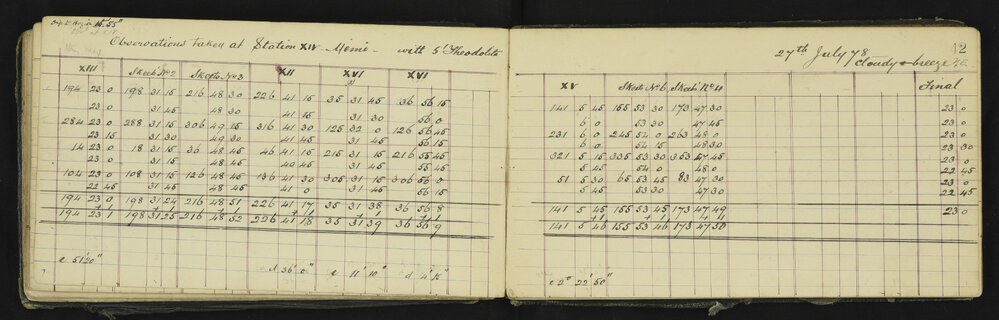 Observations taken at Station XIV - Memé - with 5" Theodolite
27th July 78 12
cloudy & breeze
XIII Skeets No 2 Skeets No 3 XII XVI XVI
XV Skeets No 6 Skeets No 4 Final
194 23 0 198 31 15 216 48 30 226 41 15 35 31 45 36 56 15
141 5 45 155 53 30 173 47 30 23 0
23 0 31 45 48 30 41 15 31 30 56 0
6 0 53 30 47 45 23 0
284 23 0 288 31 15 306 49 15 316 41 30 125 32 0 126 56 45
231 6 0 245 54 0 263 48 0 23 0
23 15 31 30 49 30 41 45 31 45 56 15
6 0 54 15 48 30 23 30
14 23 0 18 31 15 36 48 45 46 41 15 215 31 15 216 55 45
321 5 15 335 53 30 353 47 45 23 0
23 0 31 15 48 45 40 45 31 45 55 45
5 45 54 0 48 0 22 45
104 23 0 108 31 15 126 48 45 136 41 30 305 31 15 306 56 0
51 5 30 65 53 45 83 47 30 23 0
22 45 31 45 48 45 41 0 31 45 56 15
5 45 53 30 47 30 22 45
194 23 0 198 31 24 216 48 51 226 41 17 35 31 38 36 56 8
141 5 45 155 53 45 173 47 49 23 0
+1 +1 +1
+1 +1 +1
194 23 1 198 31 25 216 48 52 226 41 18 35 31 39 36 56 9
141 5 46 155 53 46 173 47 50
e 51' 20" d 36' 0" e 11' 10" d 4' 15"
e 2° 22' 50"